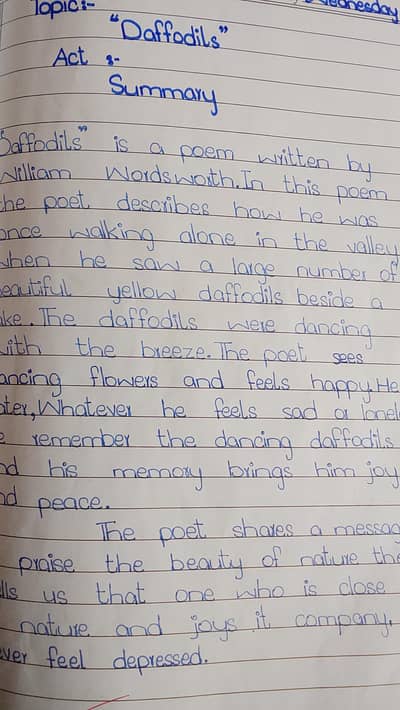 Topic:- Wednesday
"Daffodils"
Act :-
Summary
Daffodils" is a poem written by
William Wordsworth. In this poem
the poet describes how he was
once walking alone in the valley
when he saw a large number of
beautiful yellow daffodils beside a
lake. The daffodils were dancing
with the breeze. The poet sees
dancing flowers and feels happy. He
later, Whatever he feels sad or lonel
he remember the dancing daffodils
and his memory brings him joy
and peace.
The poet shares a messag
praise the beauty of nature the
tells us that one who is close
nature and joys it company.
never feel depressed.